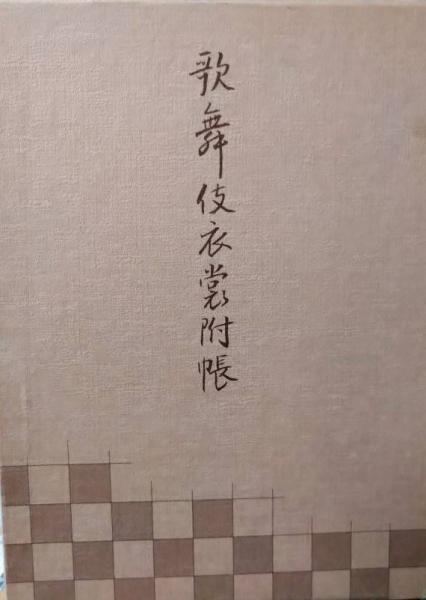 歌舞伎衣裳附帳